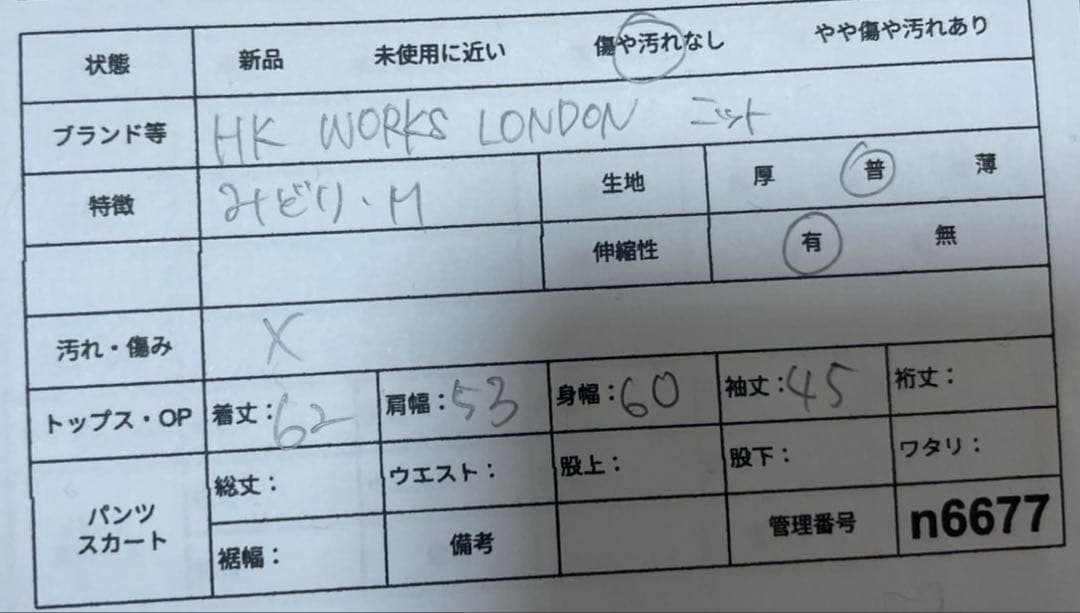 状態 新品 未使用に近い 傷や汚れなし やや傷や汚れあり
ブランド等 HK WORKS LONDON ニット
特徴 みどり・M 生地 厚 普 薄
伸縮性 有 無
汚れ・傷み X
トップス・OP 着丈：62 肩幅：53 身幅：60 袖丈：45 裄丈：
パンツ
スカート
総丈： ウエスト： 股上： 股下： ワタリ：
裾幅： 備考 管理番号 n6677